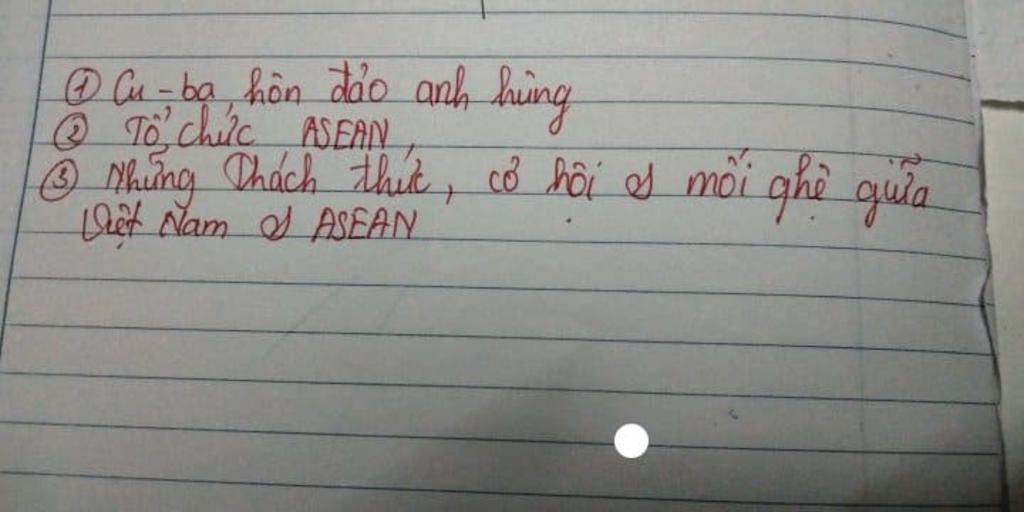 ① Cu-ba, hòn đảo anh hùng
② Tổ chức ASEAN,
③ Những Thách thức, cơ hội & mối ghệ giữa
Việt Nam & ASEAN